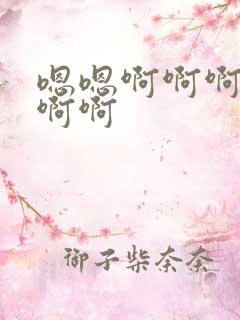 嗯嗯啊啊啊
啊啊
御子柴奈奈